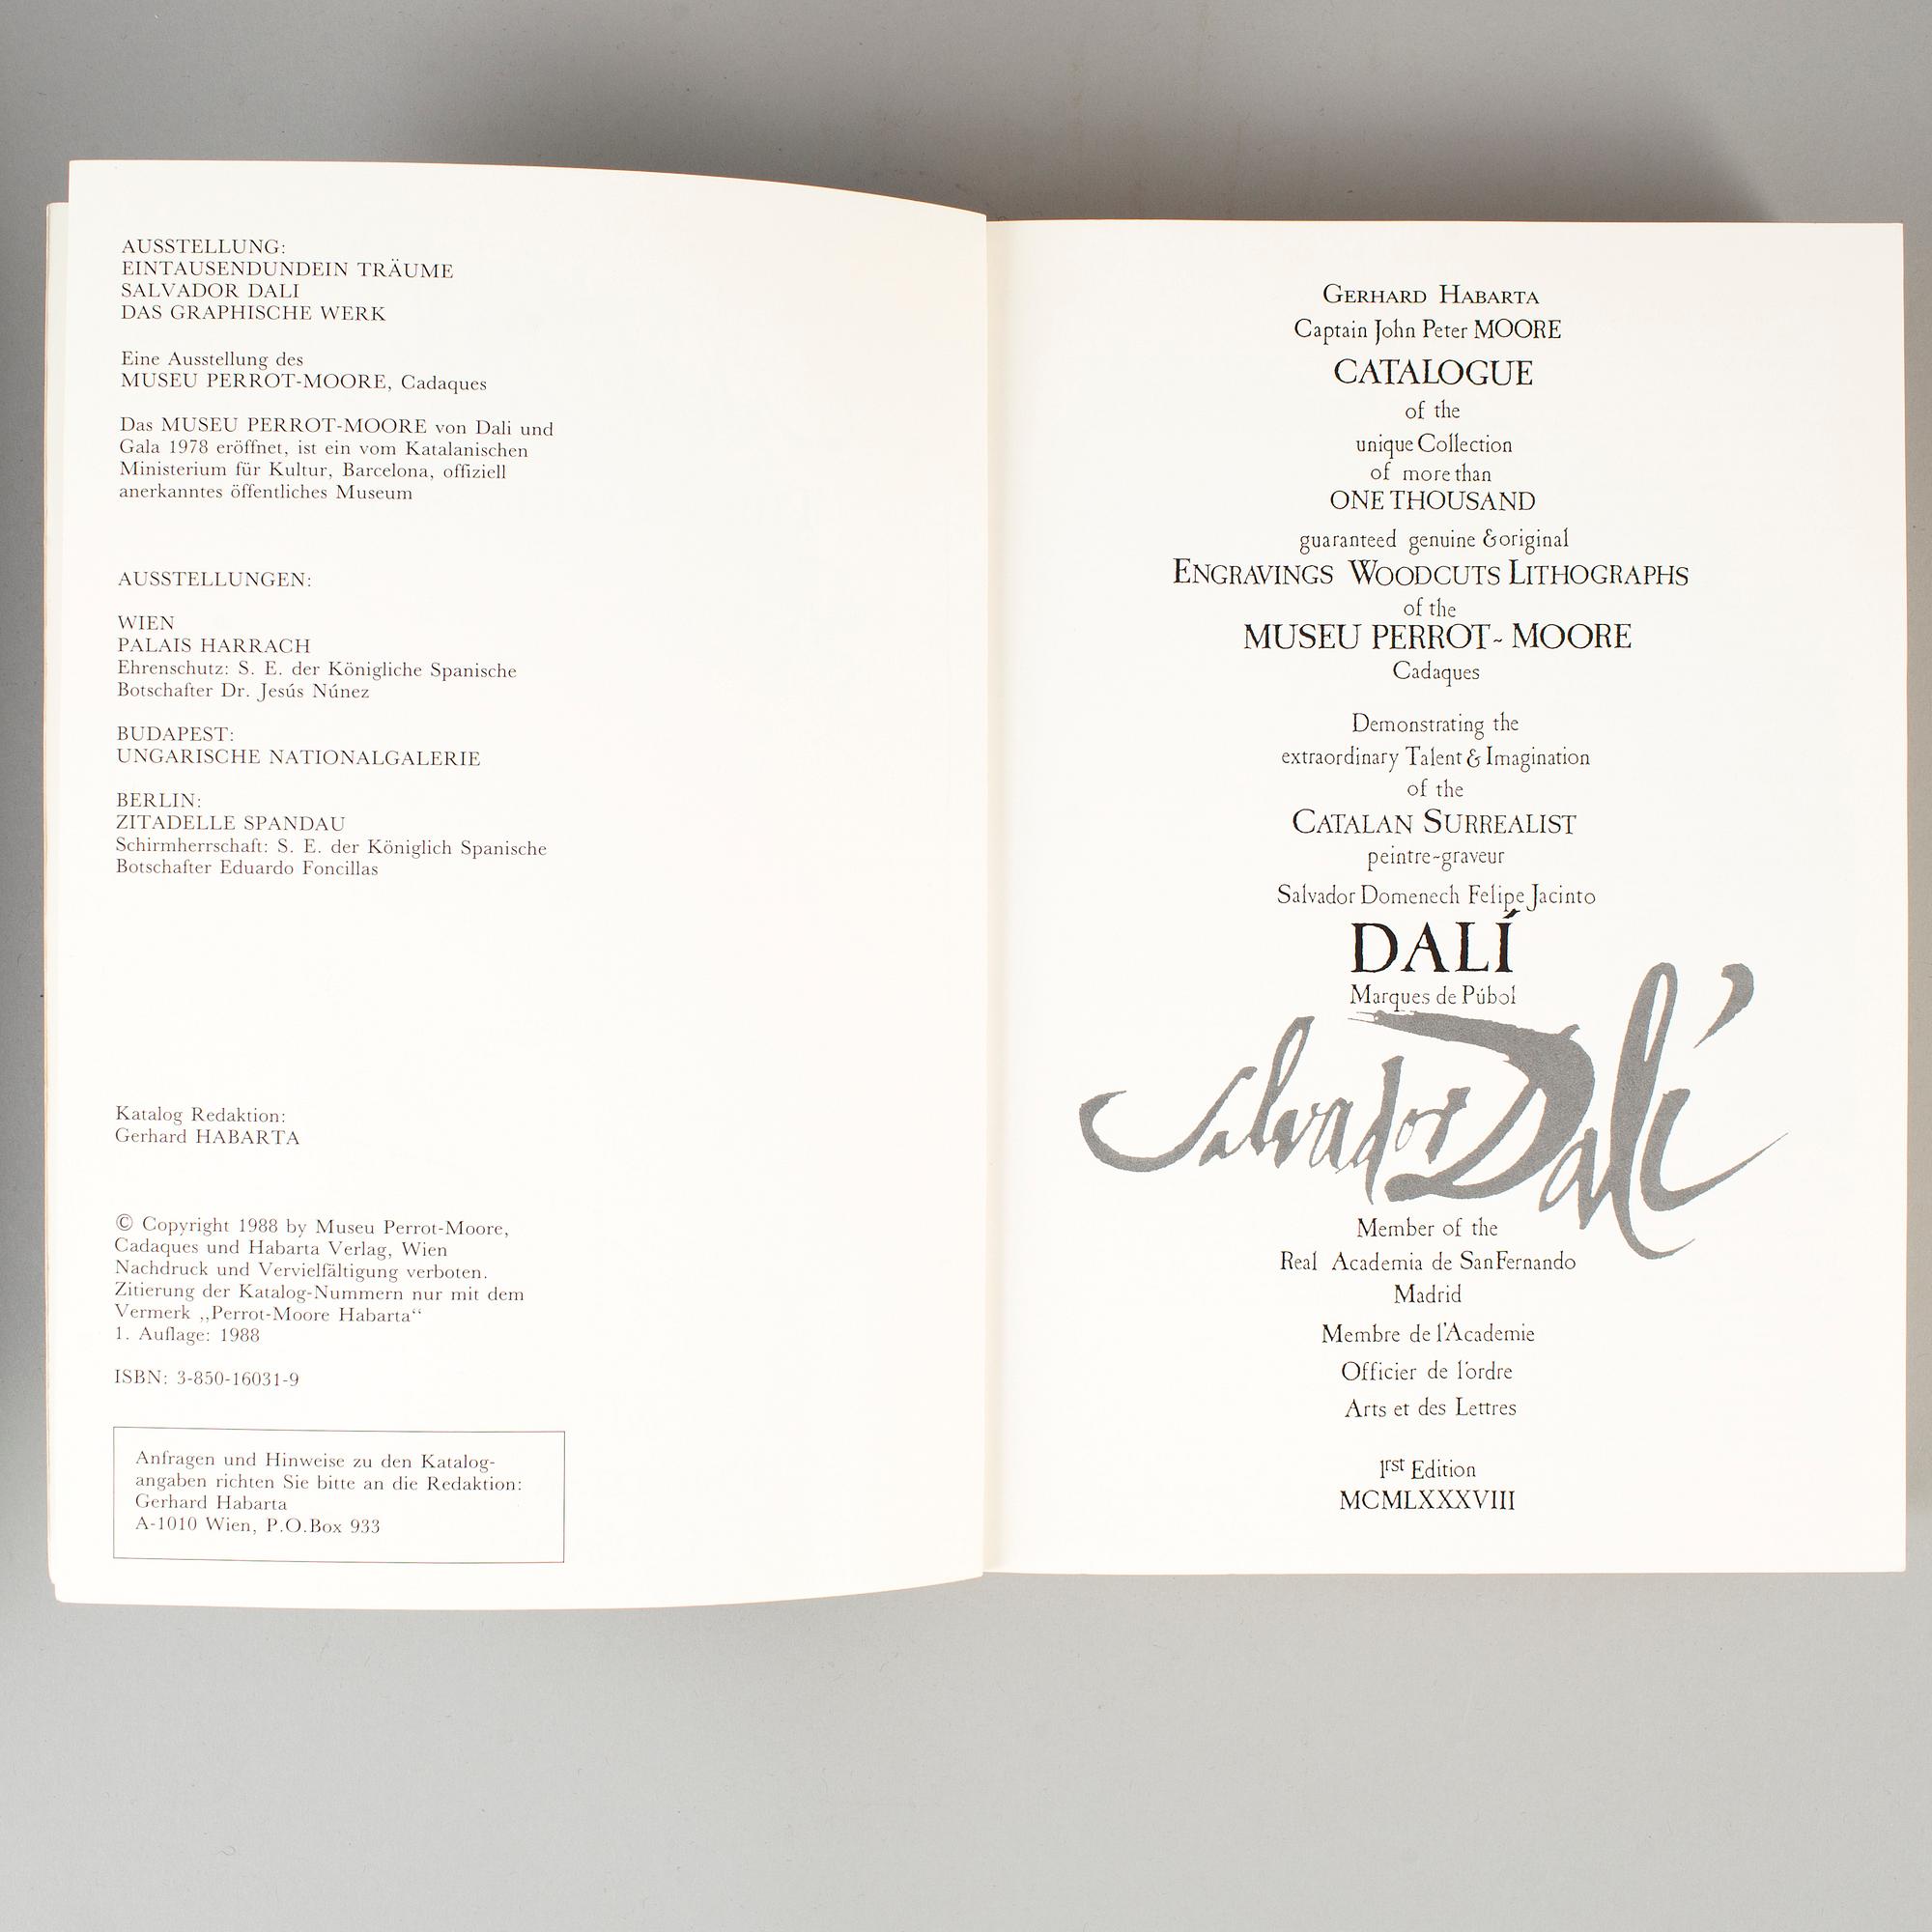 AUSSTELLUNG:
EINTAUSENDUNDEIN TRÄUME
SALVADOR DALI
DAS GRAPHISCHE WERK
Eine Ausstellung des
MUSEU PERROT-MOORE, Cadaques
Das MUSEU PERROT-MOORE von Dali und
Gala 1978 eröffnet, ist ein vom Katalanischen
Ministerium für Kultur, Barcelona, offiziell
anerkanntes öffentliches Museum
AUSSTELLUNGEN:
WIEN
PALAIS HARRACH
Ehrenschutz: S. E. der Königliche Spanische
Botschafter Dr. Jesús Núnez
BUDAPEST:
UNGARISCHE NATIONALGALERIE
BERLIN:
ZITADELLE SPANDAU
Schirmherrschaft: S. E. der Königlich Spanische
Botschafter Eduardo Foncillas
Katalog Redaktion:
Gerhard HABARTA
© Copyright 1988 by Museu Perrot-Moore,
Cadaques und Habarta Verlag, Wien
Nachdruck und Vervielfältigung verboten.
Zitierung der Katalog-Nummern nur mit dem
Vermerk ,,Perrot-Moore Habarta“
1. Auflage: 1988
ISBN: 3-850-16031-9
Anfragen und Hinweise zu den Katalog-
angaben richten Sie bitte an die Redaktion:
Gerhard Habarta
A-1010 Wien, P.O.Box 933
GERHARD HABARTA
Captain John Peter MOORE
CATALOGUE
of the
unique Collection
of more than
ONE THOUSAND
guaranteed genuine & original
ENGRAVINGS WOODCUTS LITHOGRAPHS
of the
MUSEU PERROT-MOORE
Cadaques
Demonstrating the
extraordinary Talent & Imagination
of the
CATALAN SURREALIST
peintre-graveur
Salvador Domenech Felipe Jacinto
DALÍ
Marques de Púbol
Salvador Dalí
Member of the
Real Academia de San Fernando
Madrid
Membre de l'Academie
Officier de l'ordre
Arts et des Lettres
1rst Edition
MCMLXXXVIII